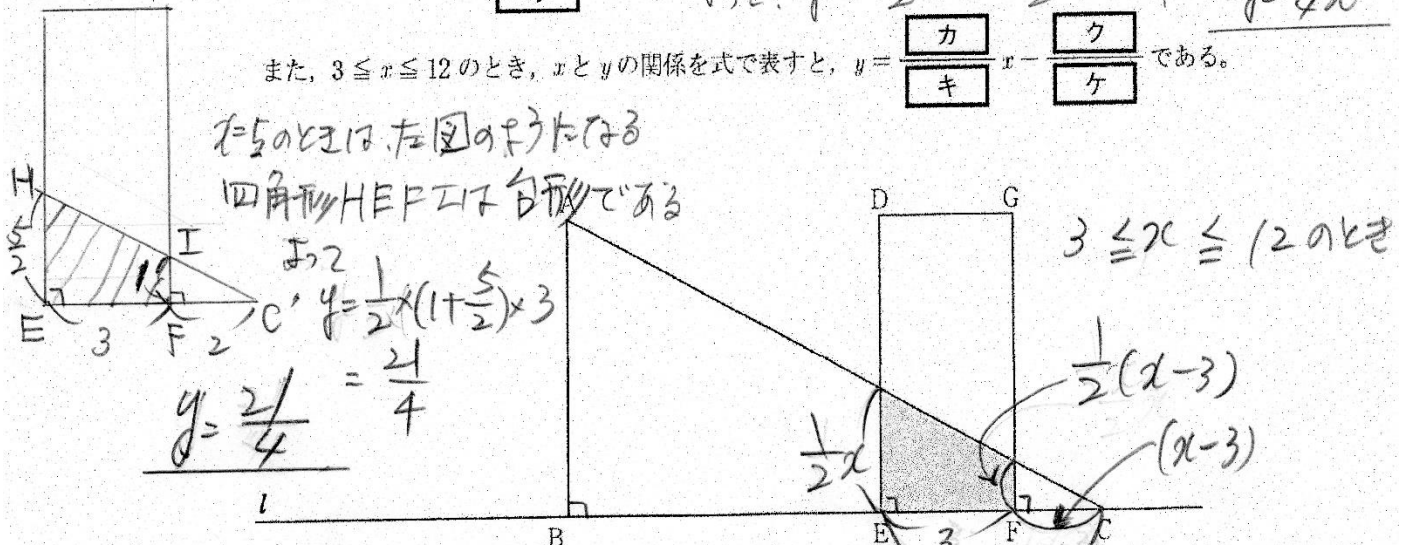 y=4x
また，3≦x≦12のとき，xとyの関係を式で表すと，y=カ/キ x−ク/ケ である。
x=5のときは、左図のようになる
四角形HEFIは台形である
よって
y=1/2×(1+5/2)×3
=21/4
y=21/4
H
I
5/2
1
E 3 F 2 C
3≦x≦12のとき
A
D G
1/2(x-3)
(x-3)
1/2x
l
B E 3 F C